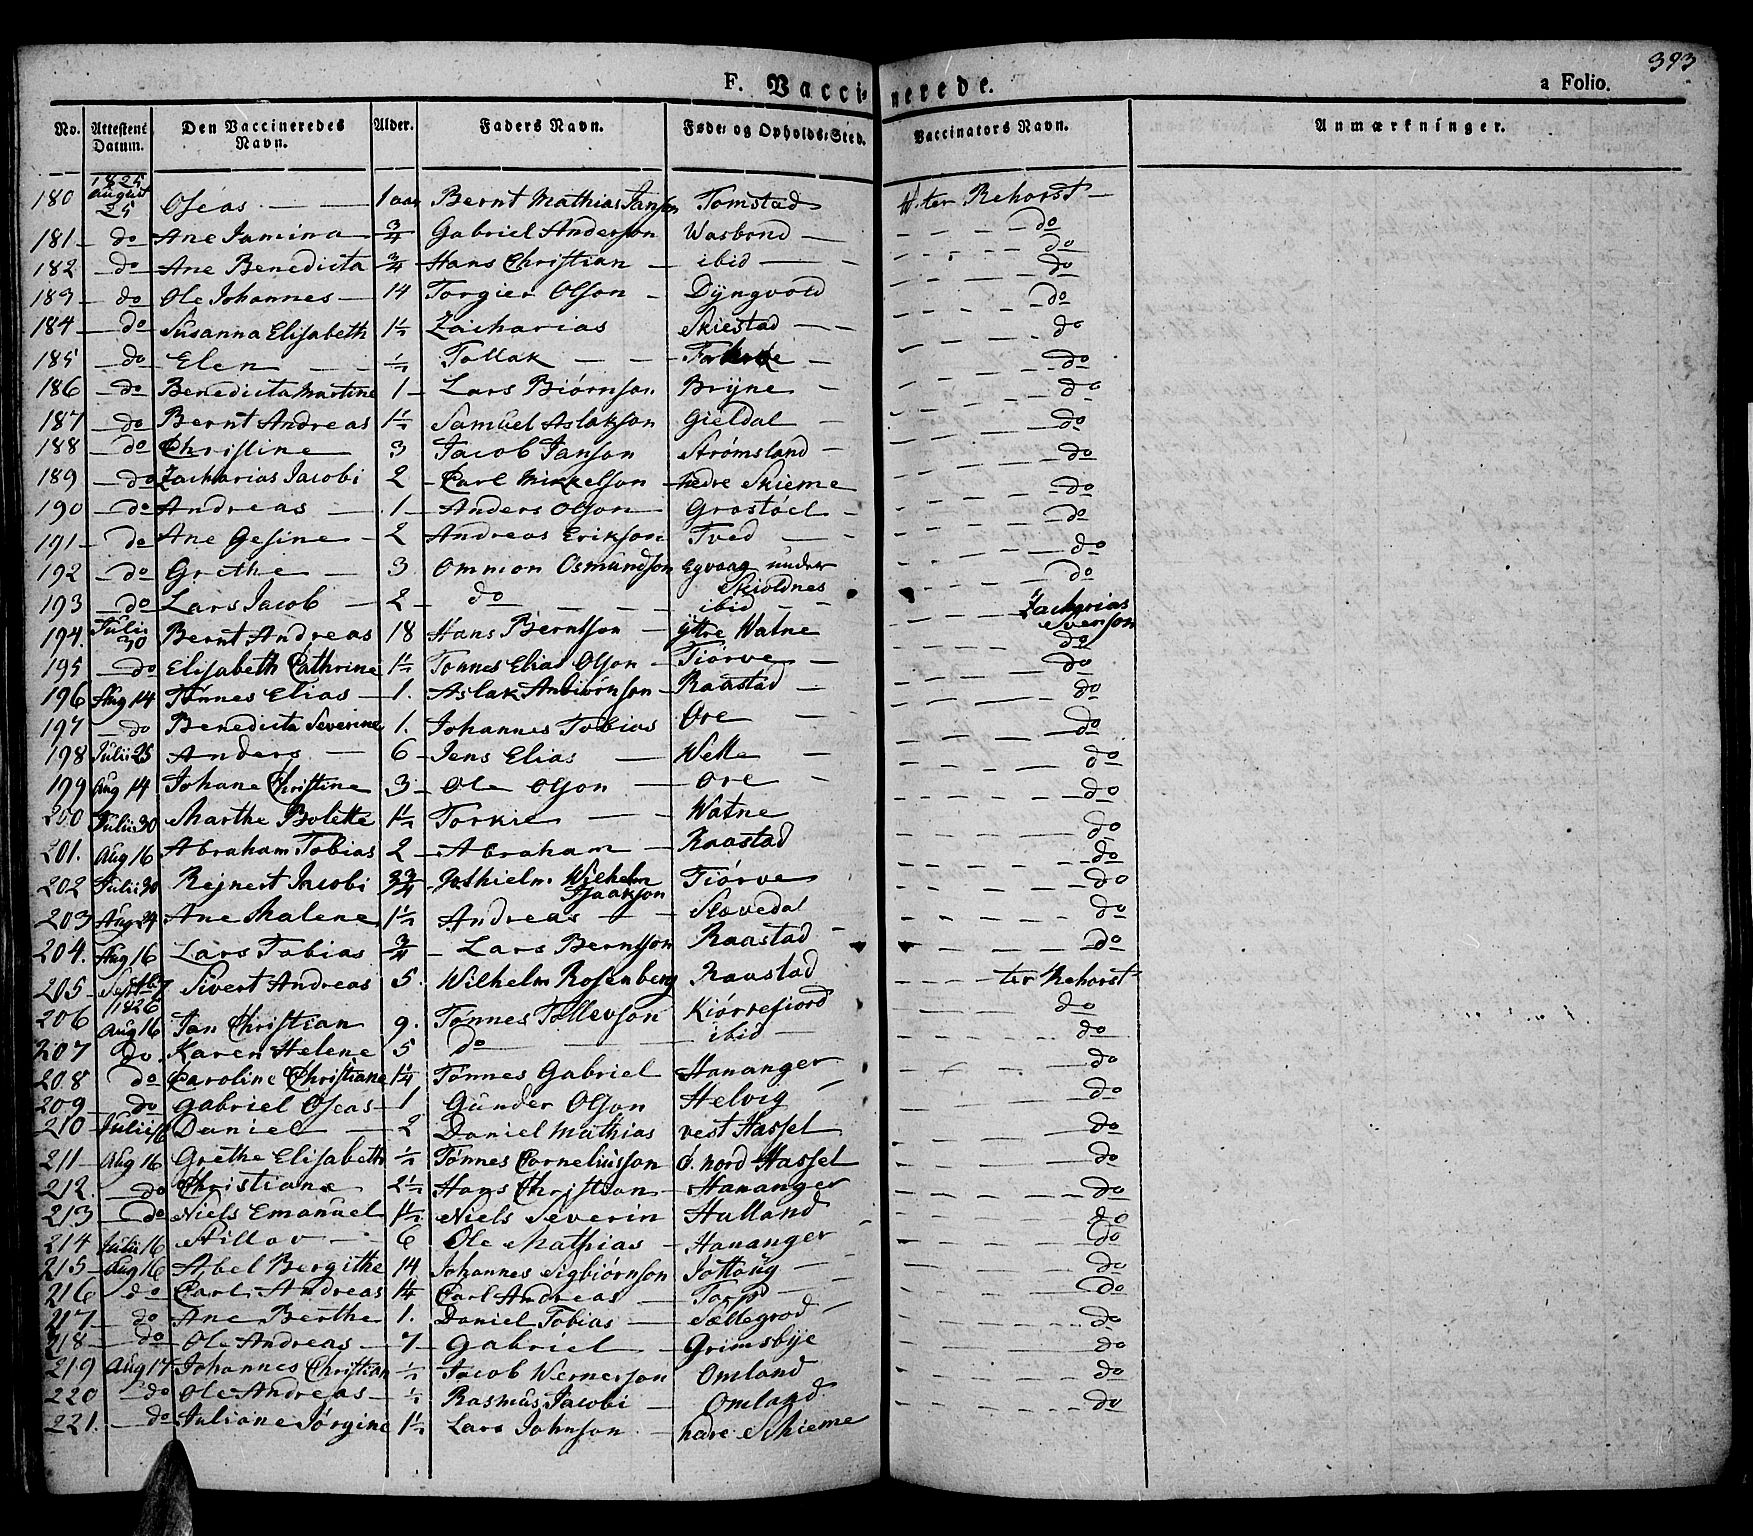 393
F. Vaccinerede. a Folio.
No. Attestens Datum. Den Vaccineredes Navn. Alder. Faders Navn. Føde- og Opholds-Sted. Vaccinators Navn. Anmærkninger.
180 1825 August 25 Oseas 1 aar Bernt Mathias Janson Tomstad H. ter Rehorst
181 do Ane Jamina 3/4 Gabriel Anderson Wasbond do
182 do Ane Benedicta 3/4 Hans Christian ibid do
183 do Ole Johannes 14 Torgier Olson Dyngvold do
184 do Susanna Elisabeth 1½ Zacharias Skiestad do
185 do Elen ½ Tollak do
186 do Benedicta Martine 1 Lars Biørnson Bryne do
187 do Bernt Andreas 1½ Samuel Aslakson Gieldal do
188 do Christine 3 Jacob Janson Strømsland do
189 do Zacharias Jacobi 2 Carl Mikkelson nedre Skieme do
190 do Andreas 1 Anders Olson Grostøel do
191 do Ane Gesine 2 Andreas Erikson Tved do
192 do Grethe 3 Ommon Osmundson Egvaag under Skioldnes do
193 do Lars Jacob 2 do ibid do
194. Julii 30 Bernt Andreas 18 Hans Berntson yttre Watne Zacharias Svenson
195 do Elisabeth Cathrine 1½ Tønnes Elias Olson Tiørve do
196 Aug 14 Tønnes Elias 1. Aslak Anbiørnson Raastad do
197 do Benedicta Severine 1. Johannes Tobias Øre do
198 Julii 25 Anders 6 Jens Elias Welle do
199 Aug 14 Johane Christine 3 Ole Olson Ore do
200 Julii 30 Marthe Bolette 1½ Torkil Watne do
201. Aug 16 Abraham Tobias 2 Abraham Raastad do
202 Julii 30 Rejnert Jacobi 3¾ Wilhelm Isaakson Tiørve do
203 Aug 24 Ane Malene 1½ Andreas Slovedal do
204. Aug 16 Lars Tobias 3/4 Lars Berntson Raastad do
205 Septb 7 Sivert Andreas 5. Wilhelm Rosenberg Raastad ter Rehorst
206 1826 Aug 16 Jan Christian 9. Tønnes Tollevson Kiørrefiord do
207 do Karen Helene 5 do ibid do
208 do Caroline Christiane 1¼ Tønnes Gabriel Hananger do
209 do Gabriel Oseas 1 Gunder Olson Helvig do
210 Julii 16 Daniel 2 Daniel Mathias vest Hassel do
211 Aug 16 Grethe Elisabeth ½ Tønnes Corneliusson ø. nord Hassel do
212. do Christiane 2½ Hans Christian Hananger do
213 do Niels Emanuel 1½ Niels Severin Hulland do
214 Julii 16 6 Ole Mathias Hananger do
215 Aug 16 Abel Bergithe 14 Johannes Sigbiørnson Jøttoug do
216 do Carl Andreas 1¼ Carl Andreas Torp do
217 do Ane Berthe 1. Daniel Tobias Sællegrod do
218 do Ole Andreas 7 Gabriel Grimsbye do
219 Aug 17 Johannes Christian ½ Jacob Wernerson Omland do
220 do Ole Andreas ½ Rasmus Jacobi Omland do
221. do Juliane Jørgine 1½ Lars Johnson nedre Skieme